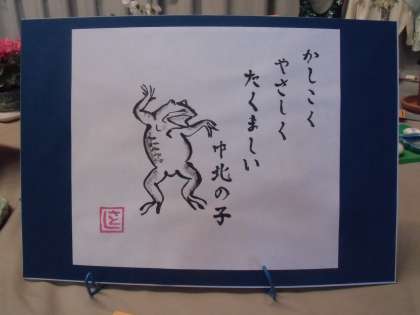 かしこく
やさしく
たくましい
巾北の子